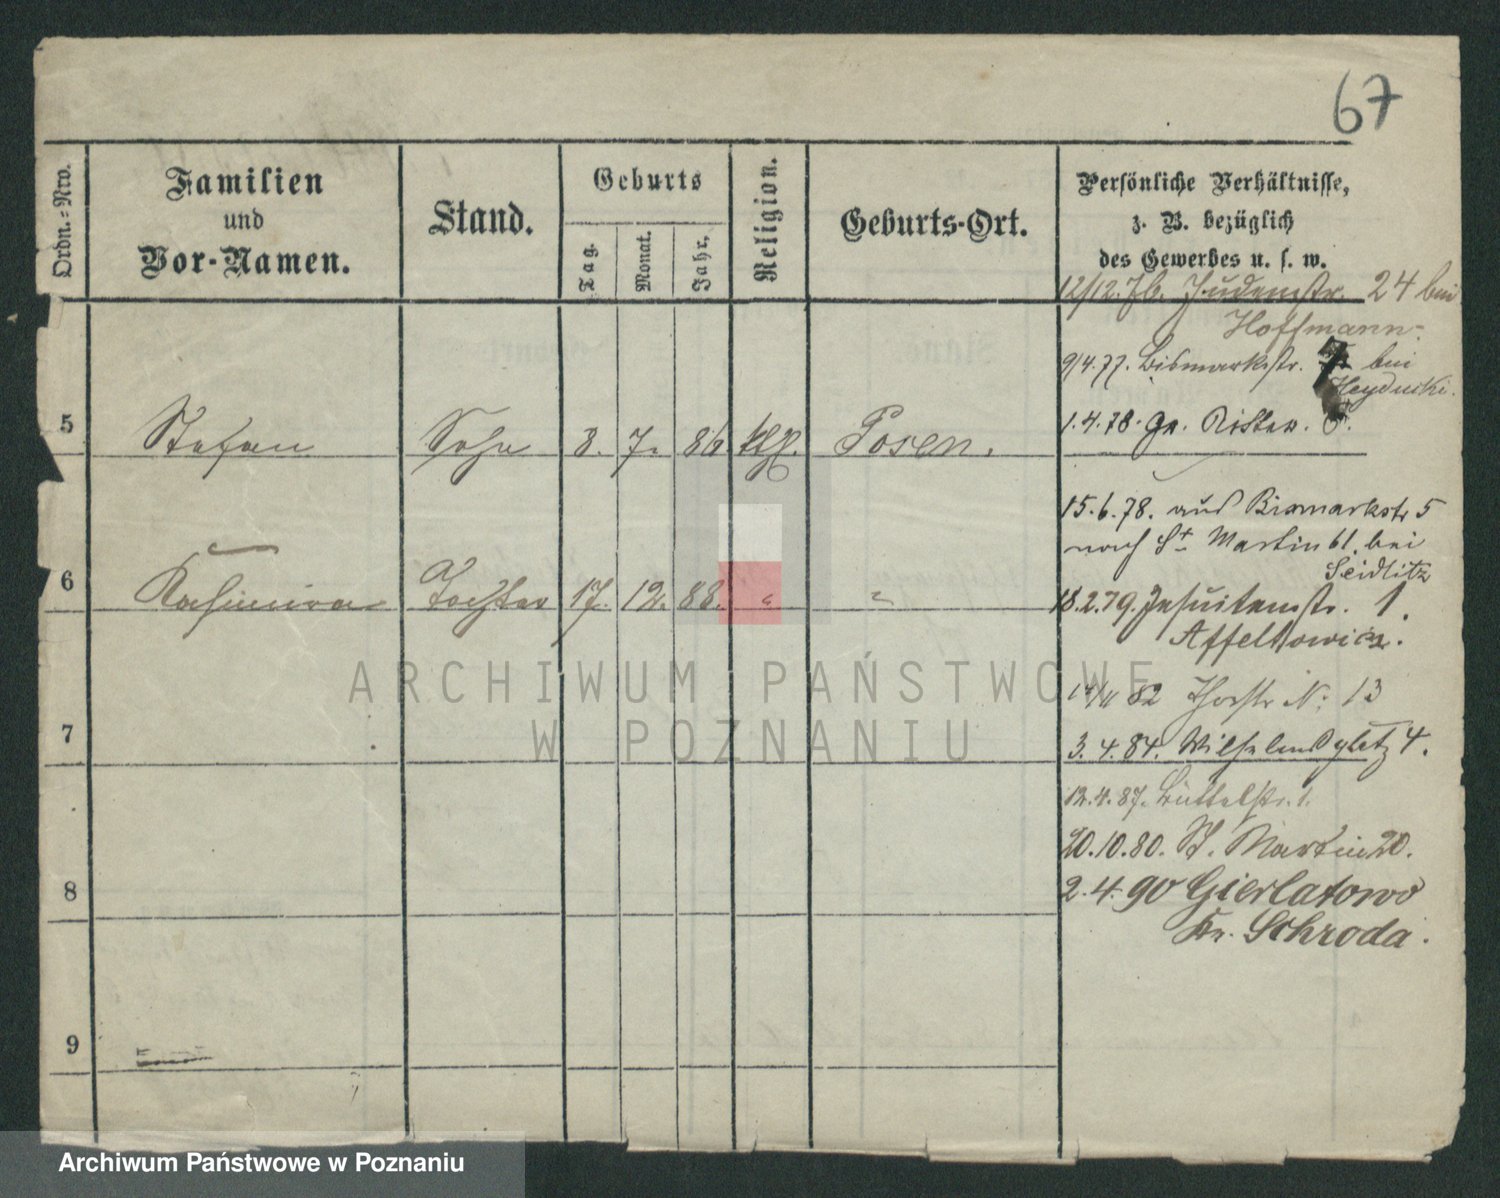 67
Ordn.=Nro.
Familien
und
Vor-Namen.
Stand.
Geburts
Tag.
Monat.
Jahr.
Religion.
Geburts-Ort.
Persönliche Verhältnisse,
z. B. bezüglich
des Gewerbes u. s. w.
12/12.76. Judenstr. 24 bei
Hoffmann.
9/4.77. Bismarkstr. 7 bei
1.4.78. Gr. Ritter.
5 Stefan Sohn 3. 7. 86 kth. Posen.
15.6.78. aus Bismarkstr 5
nach St Martin 61. bei
Seidlitz
6 Kasimira Tochter 17. 12. 88. " "
18.2.79. Jesuitenstr. 1.
Affeltowicz.
82 Thorstr N. 13
7
3.4.84. Wilhelmsplatz 4.
12.4.87. Büttelstr. 1.
20.10.80. St. Martin 20.
8
2.4.90 Gierlatowo
Kr. Schroda.
9
ARCHIWUM PAŃSTWOWE
W POZNANIU
Archiwum Państwowe w Poznaniu